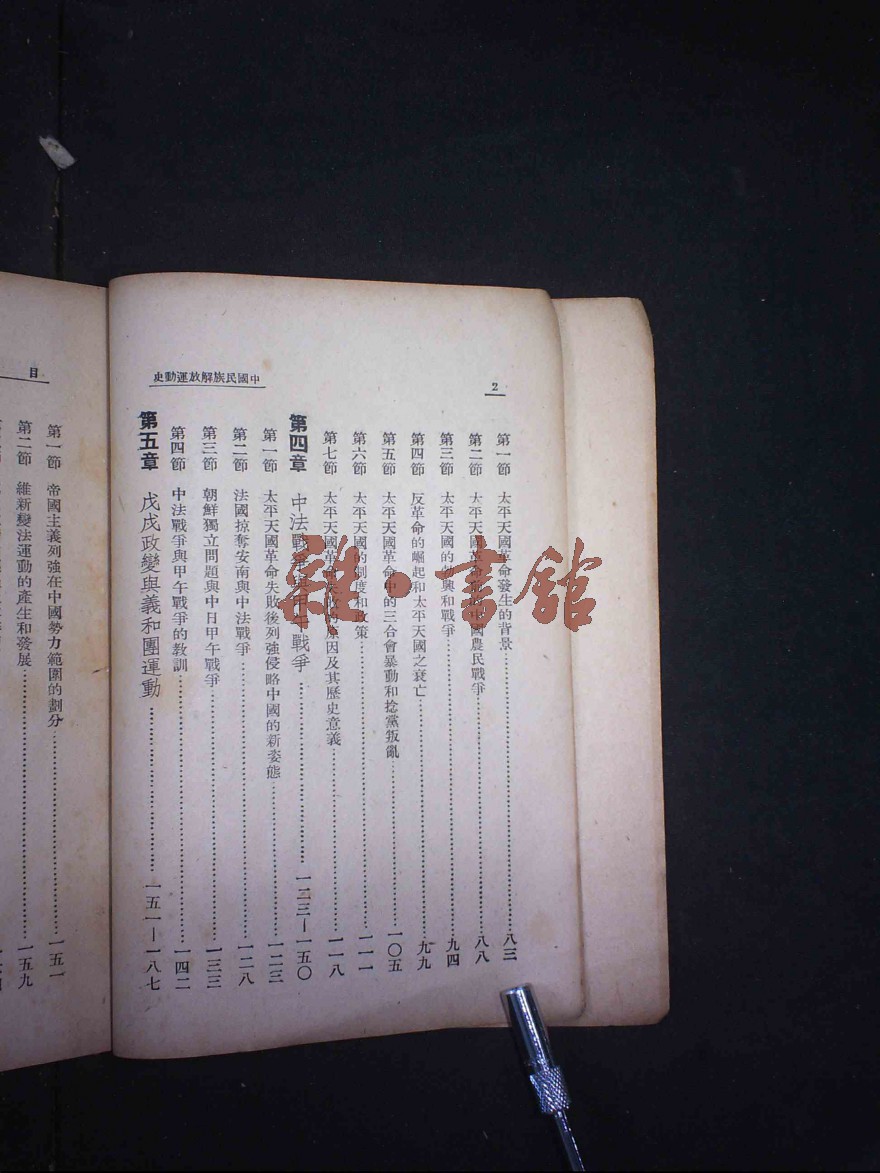 2
中國民族解放運動史
第一節 太平天國革命發生的背景……八三
第二節 太平天國革命 中國農民戰爭……八八
第三節 太平天國的勃興和戰爭……九四
第四節 反革命的崛起和太平天國之衰亡……九九
第五節 太平天國革命中的三合會暴動和捻黨叛亂……一〇五
第六節 太平天國的制度和政策……一一一
第七節 太平天國革命失敗的原因及其歷史意義……一一八
第四章 中法戰爭與甲午戰爭……一二三—一五〇
第一節 太平天國革命失敗後列強侵略中國的新姿態……一二三
第二節 法國掠奪安南與中法戰爭……一二八
第三節 朝鮮獨立問題與中日甲午戰爭……一三三
第四節 中法戰爭與甲午戰爭的教訓……一四二
第五章 戊戌政變與義和團運動……一五一—一八七
目
第一節 帝國主義列強在中國勢力範圍的劃分……一五一
第二節 維新變法運動的產生和發展……一五九
雜·書館